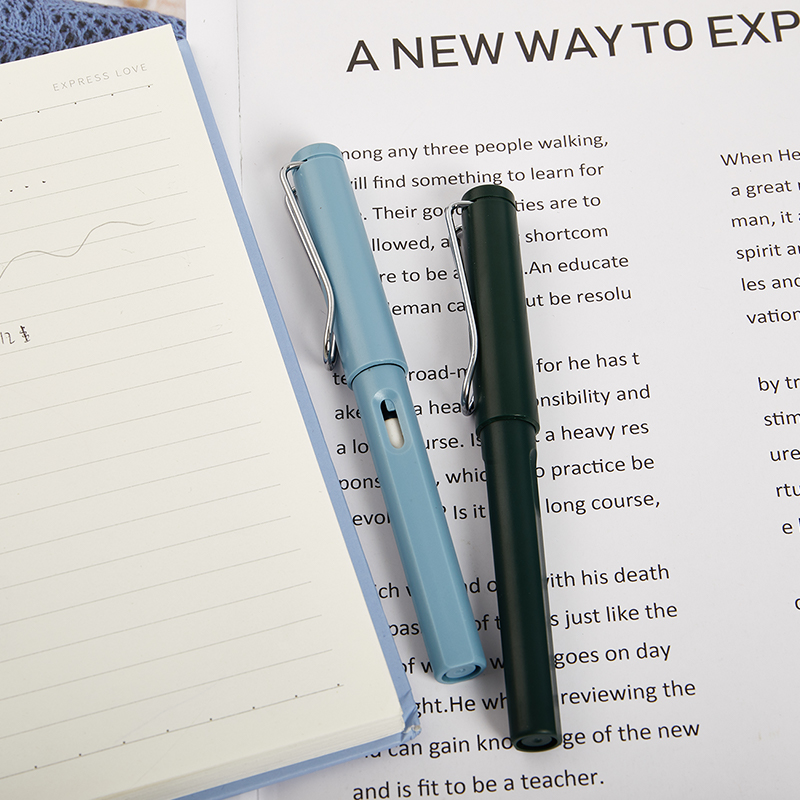 EXPRESS LOVE
A NEW WAY TO
mong any three people walking,
will find something to learn for
Their ties are to
llowed, shortcom
re to be a .An educate
eman ca ut be resolu
road-m for he has t
ake a hea onsibility and
a lo urse. Is a heavy res
pons , whic o practice be
evol ? Is it long course,
ich w nd o with his death
pas of t s just like the
of w goes on day
ght.He wh reviewing the
can gain kno ge of the new
and is fit to be a teacher.
When He
a great
man, it
spirit ar
les and
vation
by tr
stim
ure
rtu
e